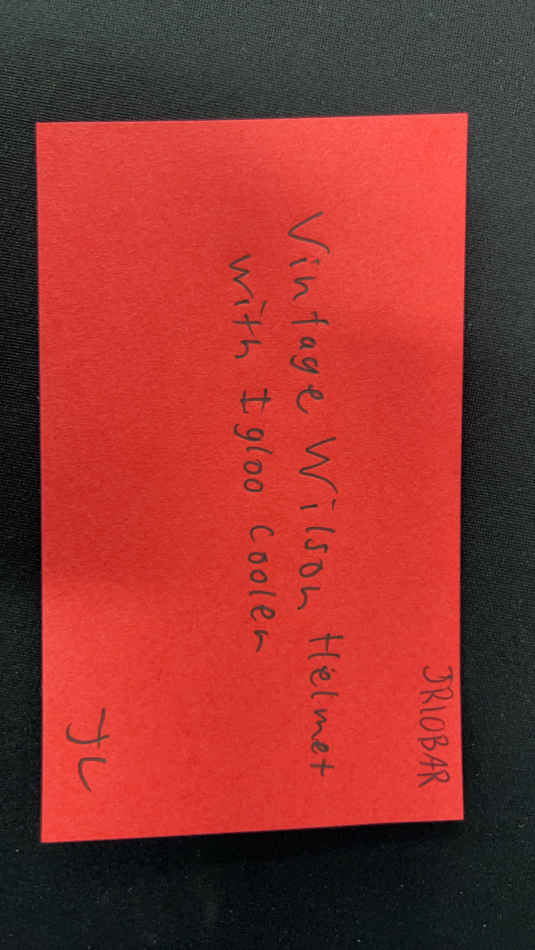 JR10BAR
Vintage Wilson Helmet
with Igloo Cooler
JL